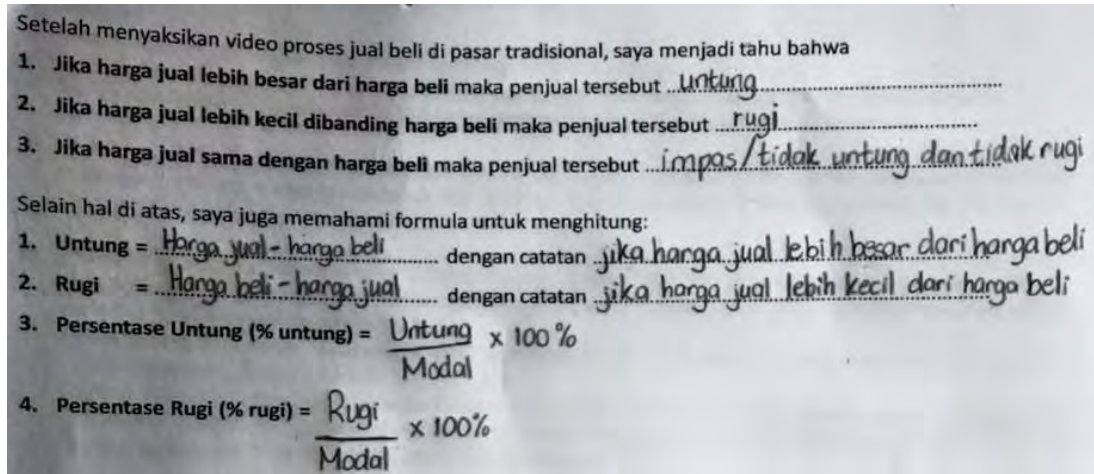 Setelah menyaksikan video proses jual beli di pasar tradisional, saya menjadi tahu bahwa
1. Jika harga jual lebih besar dari harga beli maka penjual tersebut ...untung...
2. Jika harga jual lebih kecil dibanding harga beli maka penjual tersebut ...rugi...
3. Jika harga jual sama dengan harga beli maka penjual tersebut ...impas/tidak untung dan tidak rugi
Selain hal di atas, saya juga memahami formula untuk menghitung:
1. Untung = Harga jual - harga beli dengan catatan jika harga jual lebih besar dari harga beli
2. Rugi = Harga beli - harga jual dengan catatan jika harga jual lebih kecil dari harga beli
3. Persentase Untung (% untung) = Untung x 100 %
Modal
4. Persentase Rugi (% rugi) = Rugi x 100%
Modal